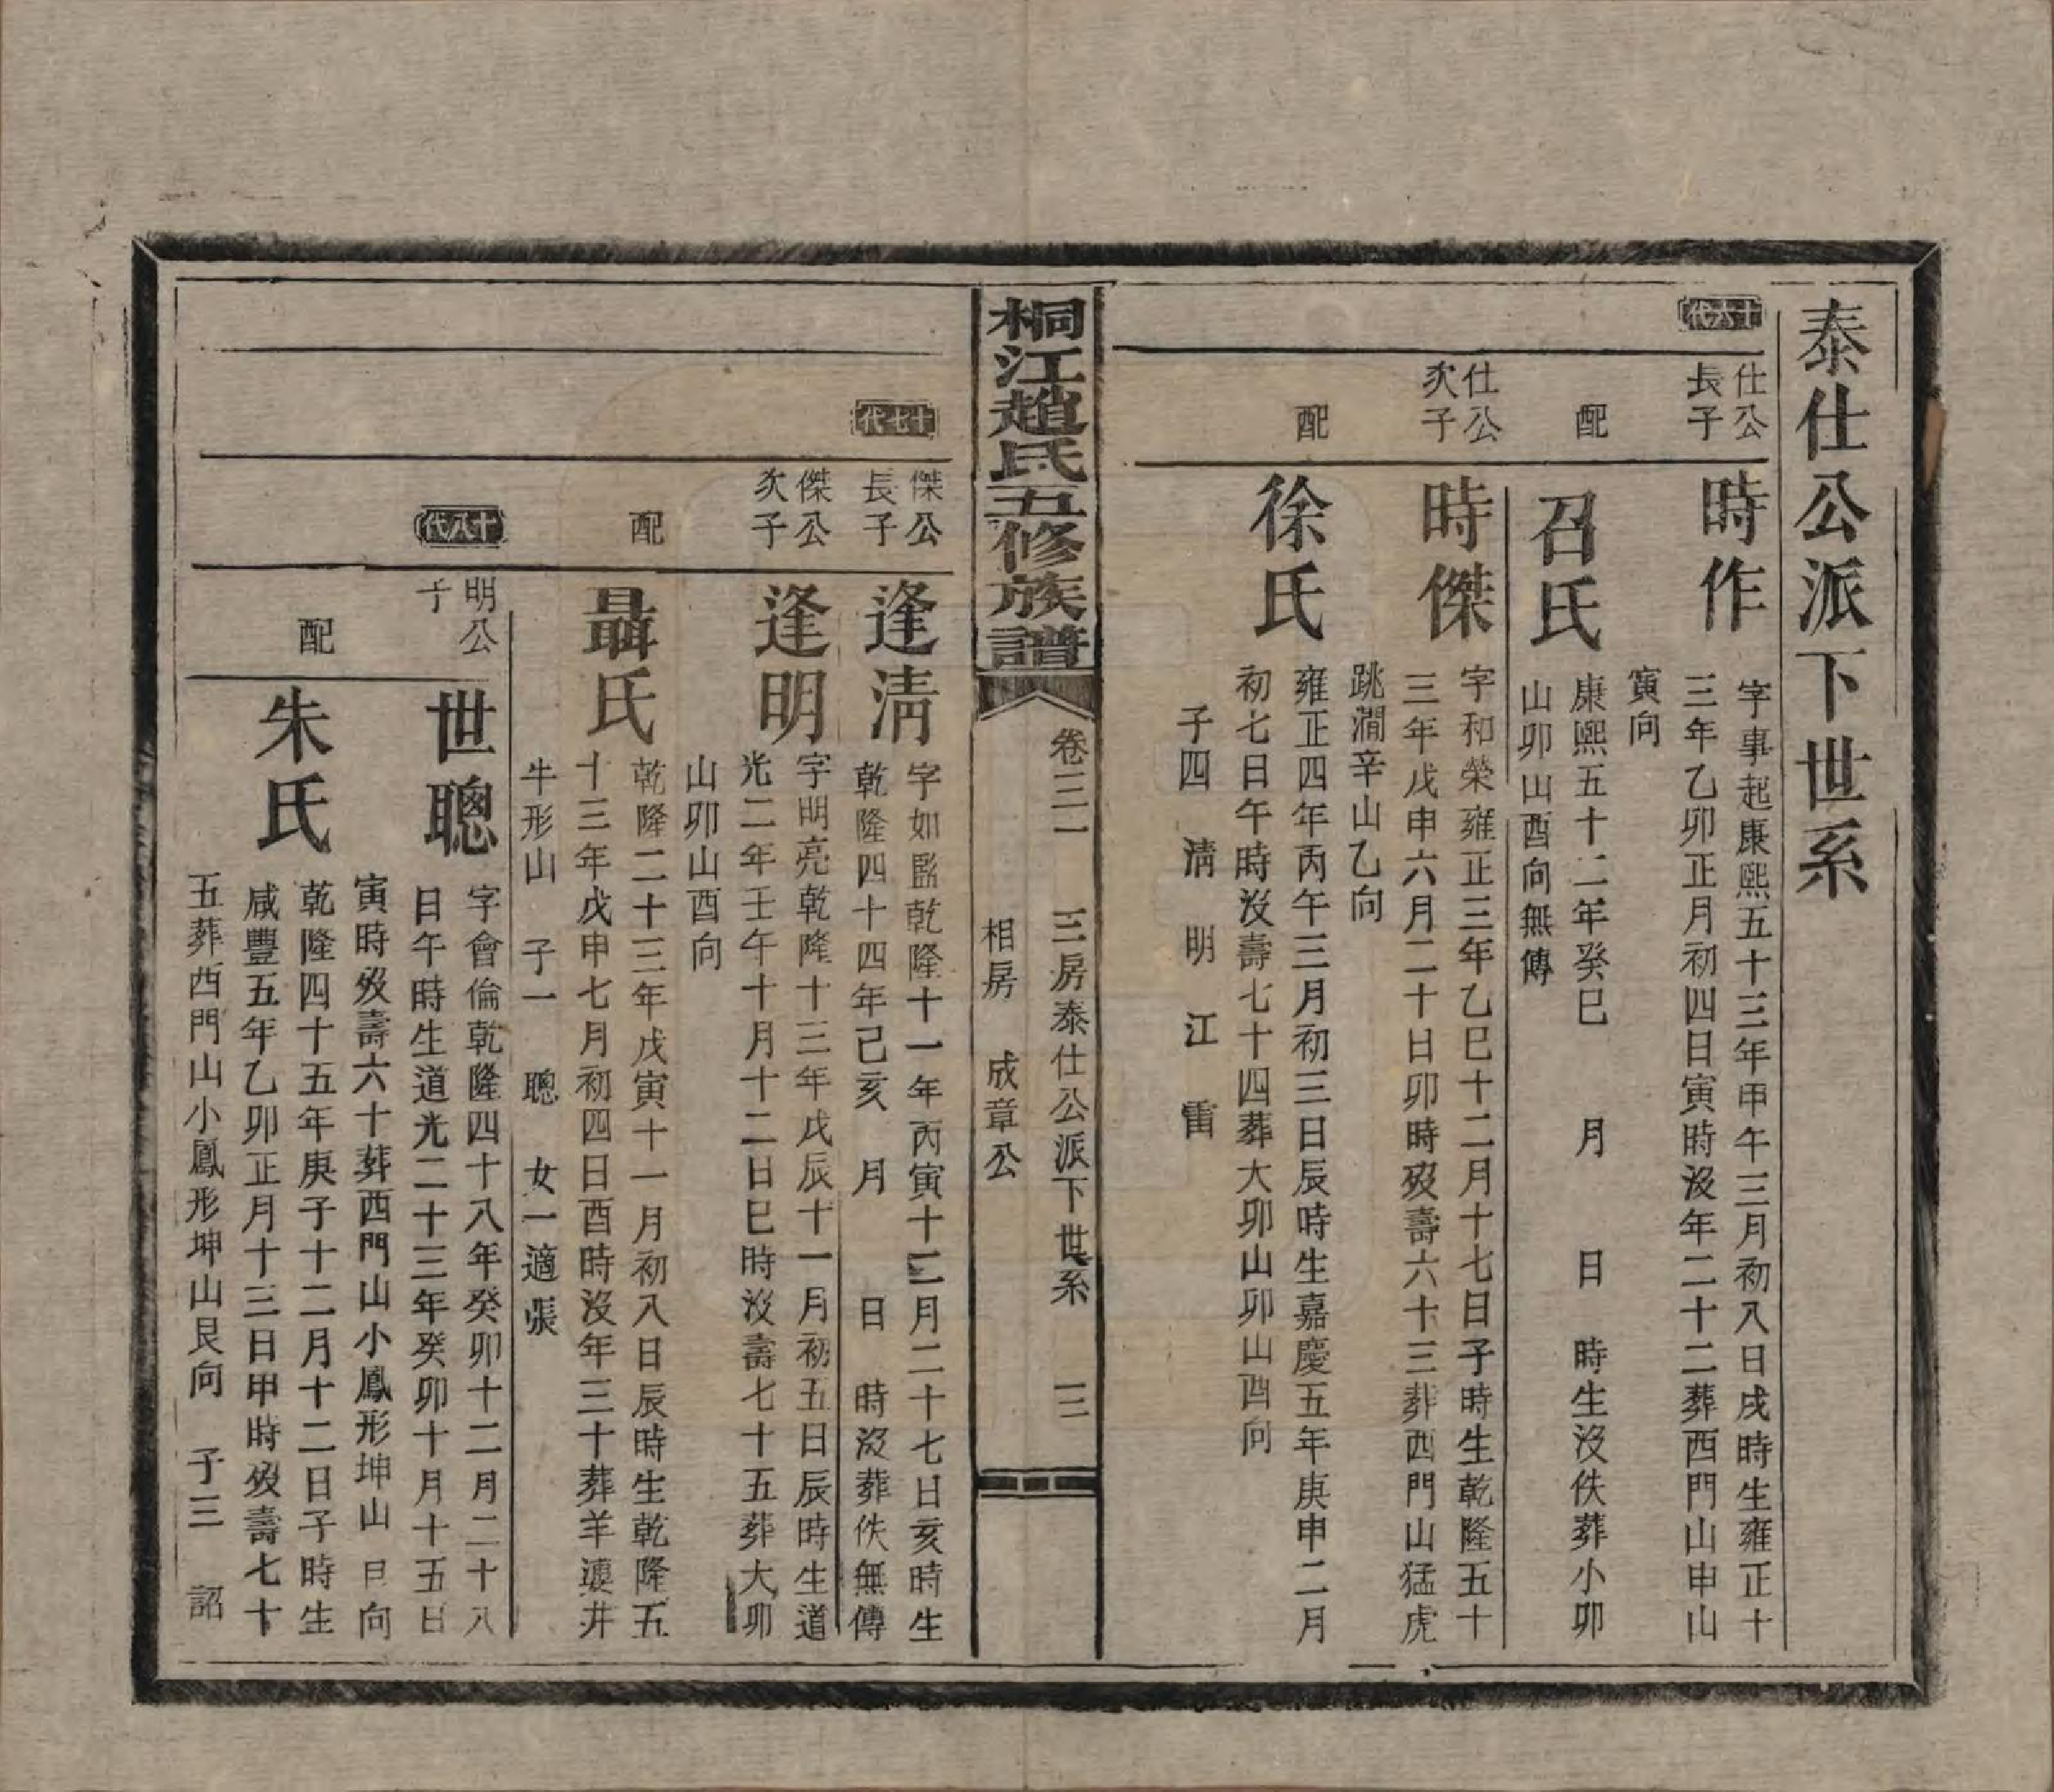 泰仕公派下世系
十六代
仕公
長子
時作
字事起康熙五十三年甲午三月初八日戌時生雍正十
三年乙卯正月初四日寅時没年二十二葬西門山申山
寅向
配
召氏
康熙五十二年癸巳 月 日 時生没佚葬小卯
山卯山酉向無傳
仕公
次子
時傑
字和榮雍正三年乙巳十二月十七日子時生乾隆五十
三年戊申六月二十日卯時殁壽六十三葬西門山猛虎
跳澗辛山乙向
配
徐氏
雍正四年丙午三月初三日辰時生嘉慶五年庚申二月
初七日午時没壽七十四葬大卯山卯山酉向
子四 清 明 江 雷
桐江趙氏五修族譜
卷三一 三房泰仕公派下世系 三
相房 成章公
十七代
傑公
長子
逢清
字如監乾隆十一年丙寅十二月二十七日亥時生
乾隆四十四年己亥 月 日 時没葬佚無傳
傑公
次子
逢明
字明亮乾隆十三年戊辰十一月初五日辰時生道
光二年壬午十月十二日巳時没壽七十五葬大卯
山卯山酉向
配
聶氏
乾隆二十三年戊寅十一月初八日辰時生乾隆五
十三年戊申七月初四日酉時没年三十葬羊井
牛形山 子一 聰 女一適張
十八代
明公
子
世聰
字會倫乾隆四十八年癸卯十二月二十八
日午時生道光二十三年癸卯十月十五日
寅時殁壽六十葬西門山小鳳形坤山艮向
配
朱氏
乾隆四十五年庚子十二月十二日子時生
咸豐五年乙卯正月十三日甲時殁壽七十
五葬西門山小鳳形坤山艮向 子三 詔